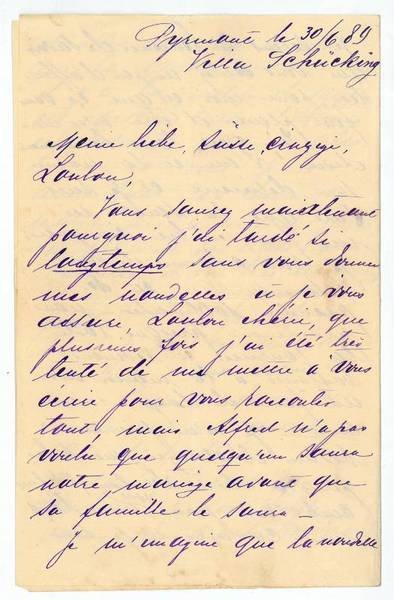 Pyrmont le 30/6 89
Villa Schücking
Meine liebe, süsse, einzige,
Loulou,
Vous saurez maintenant
pourquoi j'ai tardé si
longtemps sans vous donner
mes nouvelles et je vous
assure, Loulou chérie, que
plusieurs fois j'ai été très
tenté de me mettre à vous
écrire pour vous raconter
tout, mais Alfred n'a pas
voulu que quelqu'un saura
notre mariage avant que
sa famille le saura —
Je m'imagine que la nouvelle